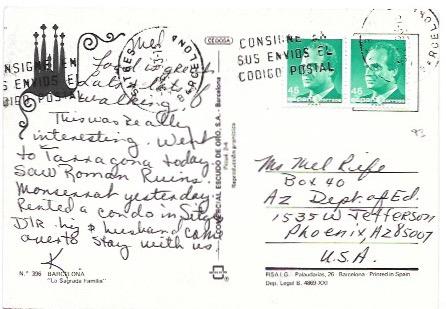 Mel
Food is great
a lot of
walking.
This was really
interesting. Went
to Tarragona today.
Saw Roman Ruins.
Monserrat yesterday.
Rented a condo in Sitges
Dtr. & husband came
over to stay with us
K.
N.º 396 BARCELONA
"La Sagrada Familia"
CEDOSA
COMERCIAL ESCUDO DE ORO, S.A. - Barcelona
Reproducción prohibida
BARCELONA
CONSIGNE EN
SUS ENVIOS EL
CODIGO POSTAL
CONSIGNE EN
SUS ENVIOS EL
CODIGO POSTAL
BARCELONA
45
45
93
Ms Mel Rife
Box 40
Az Dept. of Ed.
1535 W Jefferson
Phoenix, Az 85007
U.S.A.
FISA I.G. Palaudarias, 26 - Barcelona - Printed in Spain
Dep. Legal B. 4869-XXI